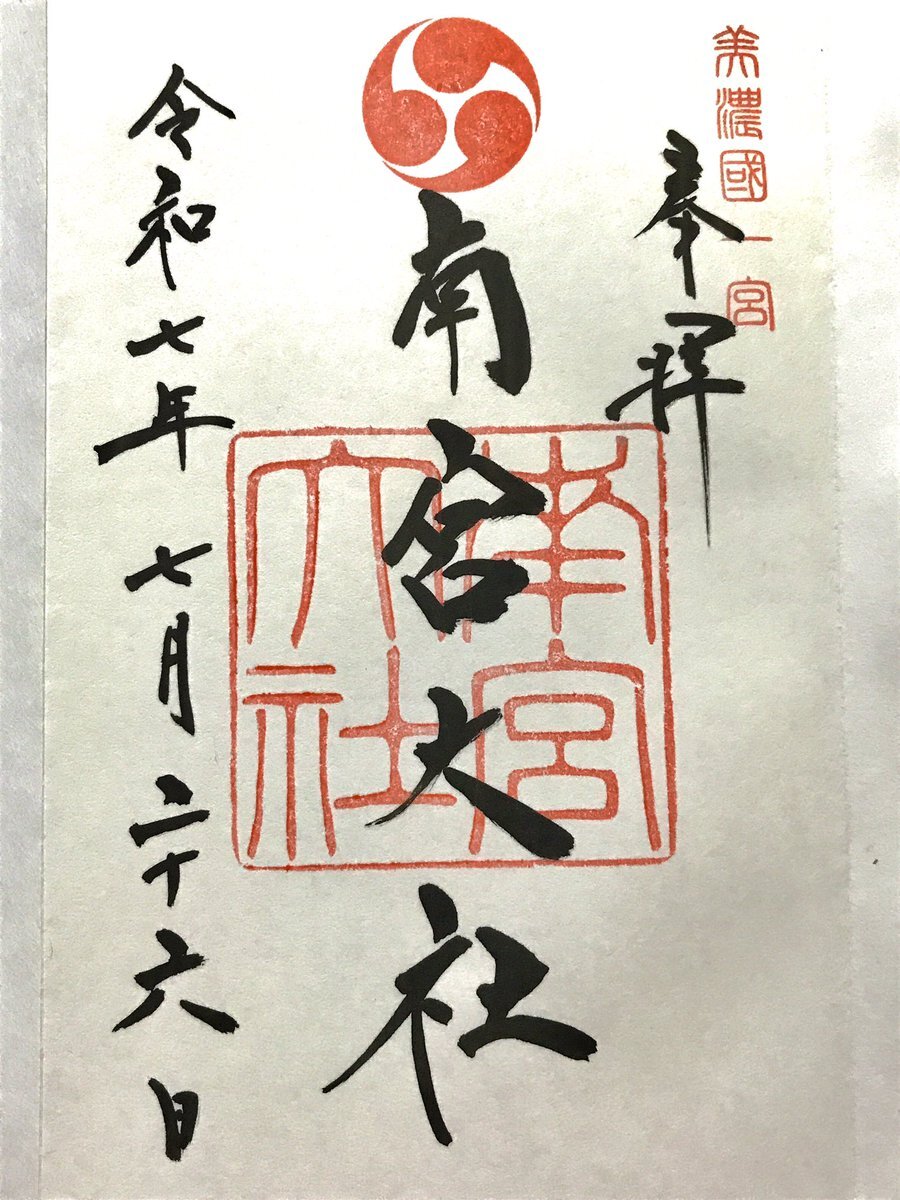 美濃國一宮
奉拝
南宮大社
南宮大社
令和七年七月二十六日